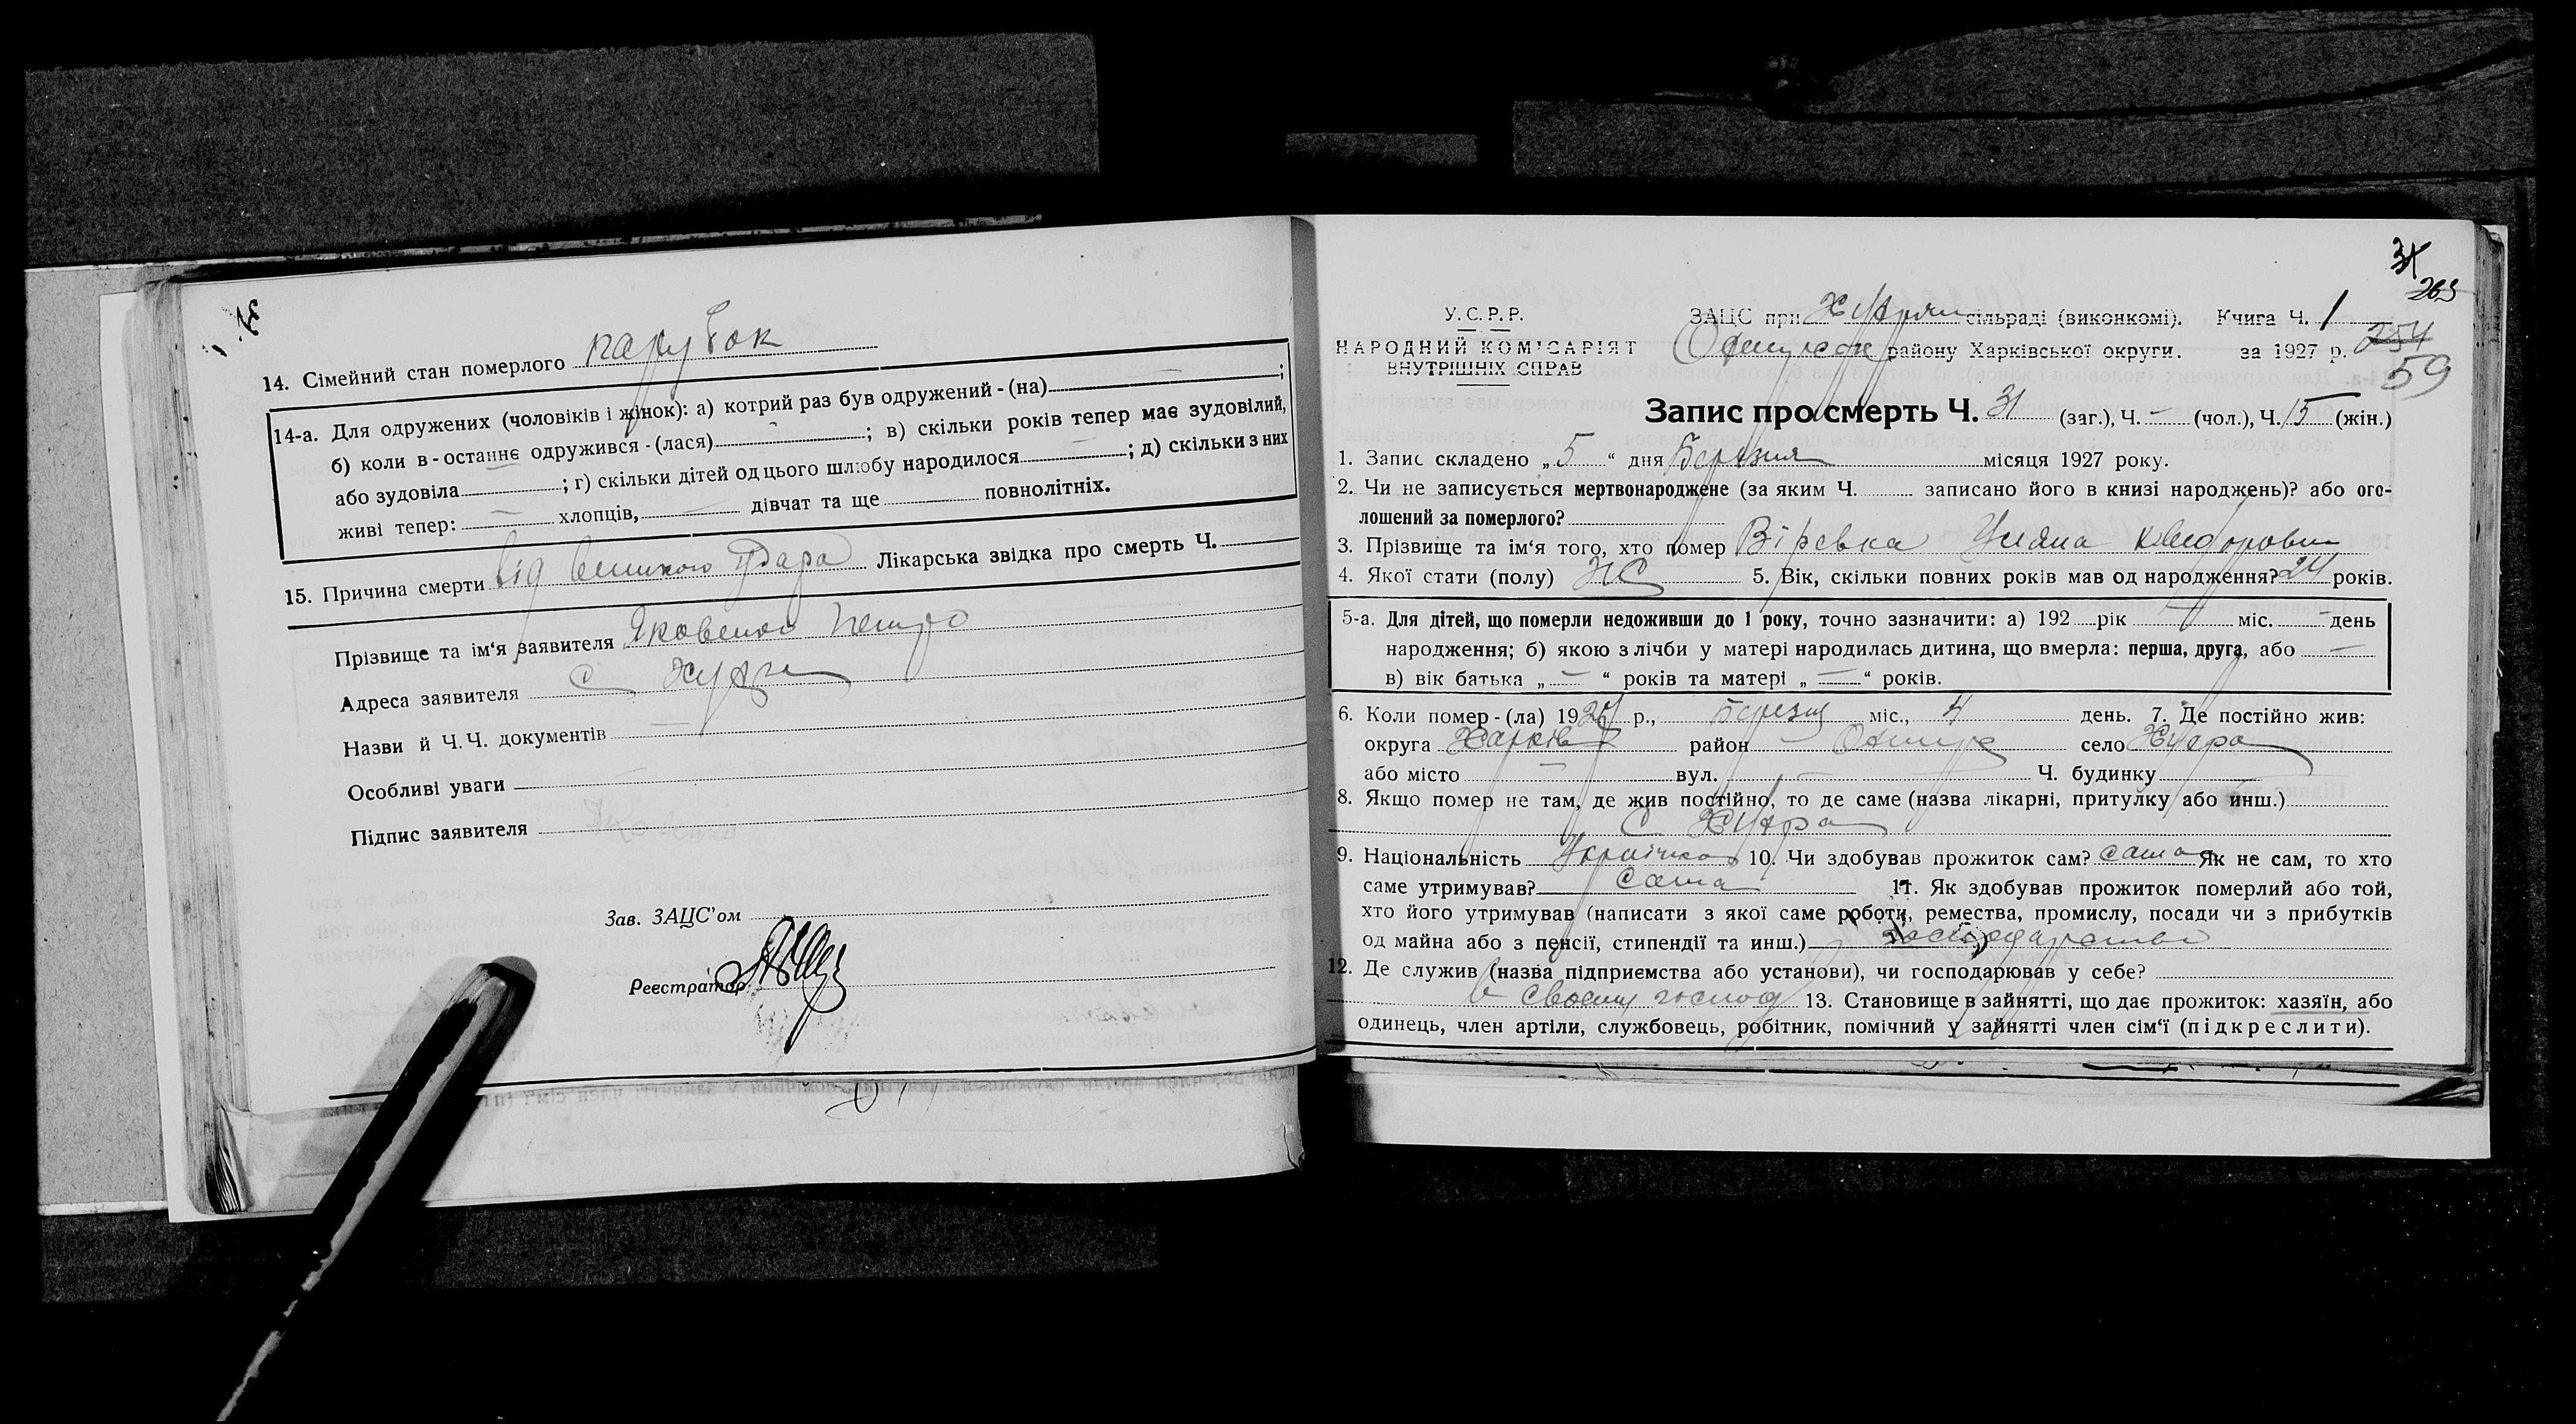 14. Сімейний стан померлого парубок
14-а. Для одружених (чоловіків і жінок): а) котрий раз був одружений - (на) ;
б) коли в - останнє одружився - (лася) ; в) скільки років тепер має зудовілий,
або зудовіла ; г) скільки дітей од цього шлюбу народилося ; д) скільки з них
живі тепер: хлопців, дівчат та ще повнолітніх.
15. Причина смерти від великого удара Лікарська звідка про смерть Ч.
Прізвище та ім'я заявителя Яковенко Петро
Адреса заявителя с
Назви й Ч. Ч. документів —
Особливі уваги —
Підпис заявителя
Зав. ЗАЦС'ом
Реєстратор
31
263
У. С. Р. Р.
НАРОДНИЙ КОМІСАРІЯТ
ВНУТРІШНІХ СПРАВ
ЗАЦС при сільраді (виконкомі). Книга Ч. 1
району Харківської округи. за 1927 р. 254
59
Запис про смерть Ч. 31 (заг.), Ч. — (чол.), Ч. 15 (жін.)
1. Запис складено „ 5 “ дня Березня місяця 1927 року.
2. Чи не записується мертвонароджене (за яким Ч. записано його в книзі народжень)? або ого-
лошений за померлого?
3. Прізвище та ім'я того, хто помер Вірєвка Уляна
4. Якої стати (полу) Ж 5. Вік, скільки повних років мав од народження? 24 років.
5-а. Для дітей, що померли недоживши до 1 року, точно зазначити: а) 192 рік — міс. — день
народження; б) якою з лічби у матері народилась дитина, що вмерла: перша, друга, або —
в) вік батька „ — “ років та матері „ — “ років.
6. Коли помер - (ла) 1927 р., міс., 4 день. 7. Де постійно жив:
округа Харків район село
або місто — вул. — Ч. будинку
8. Якщо помер не там, де жив постійно, то де саме (назва лікарні, притулку або инш.)
с
9. Національність Українка 10. Чи здобував прожиток сам? сама Як не сам, то хто
саме утримував? Сама 11. Як здобував прожиток померлий або той,
хто його утримував (написати з якої саме роботи, ремества, промислу, посади чи з прибутків
од майна або з пенсії, стипендії та инш.)
12. Де служив (назва підприємства або установи), чи господарював у себе?
в своєму господ 13. Становище в зайнятті, що дає прожиток: хазяїн, або
одинець, член артіли, службовець, робітник, помічний у зайнятті член сім'ї (підкреслити).